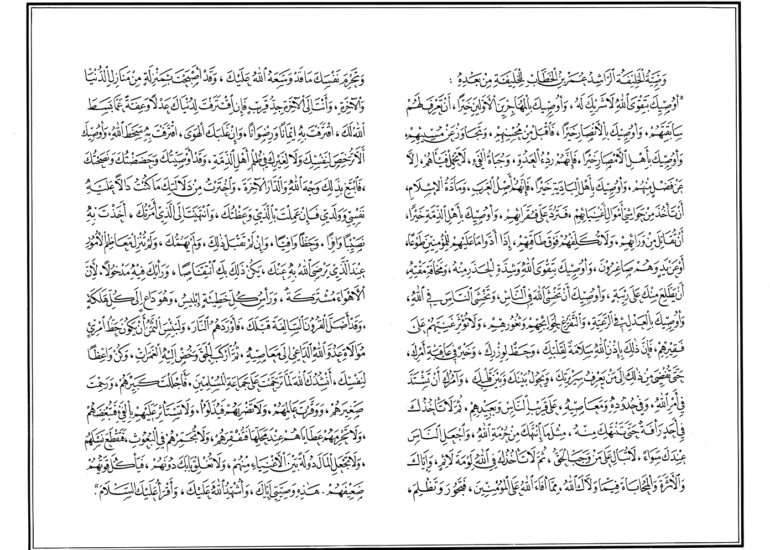 وصية الخليفة الراشد عمر بن الخطاب للخليفة من بعده :
"أوصيك بتقوى الله لا شريك له ، وأوصيك بالمهاجرين الأولين خيرًا ، أن تعرف لهم
سابقتهم ، وأوصيك بالأنصار خيرًا ، فاقبل من محسنهم ، وتجاوز عن مسيئهم ،
وأوصيك بأهل الأمصار خيرًا ، فإنهم ردء العدو ، وجباة الفيء ، لا تحمل فيئهم إلا
عن فضل منهم ، وأوصيك بأهل البادية خيرًا ، فإنهم أصل العرب ، ومادة الإسلام ،
أن تأخذ من حواشي أموال أغنيائهم ، فترد على فقرائهم ، وأوصيك بأهل الذمة خيرًا ،
أن تقاتل من ورائهم ، ولا تكلفهم فوق طاقتهم ، إذا أدوا ما عليهم للمؤمنين طوعًا ،
أو عن يد وهم صاغرون ، وأوصيك بتقوى الله وشدة الحذر منه ، ومخافة مقته
أن يطلع منك على ريبة ، وأوصيك أن تخشى الله في الناس ، وتخشى الناس في الله ،
وأوصيك بالعدل في الرعية ، والتفرغ لحوائجهم وثغورهم ، ولا تؤثر غنيهم على
فقيرهم ، فإن ذلك بإذن الله سلامة لقلبك ، وحط لوزرك ، وخير في عاقبة أمرك ،
حتى تفضي من ذلك إلى من يعرف سريرتك ، ويحول بينك وبين قلبك ، وآمرك أن تشتد
في أمر الله ، وفي حدوده ومعاصيه ، على قريب الناس وبعيدهم ، ثم لا تأخذك
في أحد رأفة حتى تنتهك منه ، مثل ما انتهك من حرمة الله ، واجعل الناس
عندك سواء ، لا تبال على من وجب الحق ، ثم لا تأخذك في الله لومة لائم ، وإياك
والأثرة والمحاباة فيما ولاك الله ، مما أفاء الله على المؤمنين ، فتجور وتظلم ،
وتحرم نفسك ما قد وسعه الله عليك ، وقد أصبحت بمنزلة من منازل الدنيا
والآخرة ، وأنت إلى الآخرة جد قريب فإن اقترفت لدنياك عدلًا وعفة عما بسط
الله لك ، اقترفت به إيمانًا ورضوانًا ، وإن غلبك الهوى ، اقترفت به سخط الله ، وأوصيك
ألا ترخص لنفسك ولا لغيرك في ظلم أهل الذمة . وقد أوصيتك وحضضتك ونصحتك
، فابتغ بذلك وجه الله والدار الآخرة ، واخترت من دلالتك ما كنت دالًا عليه
نفسي وولدي فإن عملت بالذي وعظتك ، وانتهيت إلى الذي أمرتك ، أخذت به
نصيبًا وافرًا ، وحظًا وافيًا ، وإن لم تقبل ذلك ، ولم يهمك ، ولم تنزل معاظم الأمور
عند الذي يرضى الله به عنك ، يكن ذلك بك انتقاصًا ، ورأيك فيه مدخولًا. لأن
الأهواء مشتركة ، ورأس كل خطيئة إبليس ، وهو داع إلى كل هلكة
، وقد أضل القرون السالفة قبلك ، فأوردهم النار ، ولبئس الثمن أن يكون حظ امرئ
موالاة عدو الله الداعي إلى معاصيه ، ثم اركب الحق وخض إليه الغمرات ، وكن واعظًا
لنفسك ، أنشدك الله لما ترحمت على جماعة المسلمين ، فأجللت كبيرهم ، ورحمت
صغيرهم ، ووقرت عالمهم ، ولا تضربهم فيذلوا ، ولا تستأثر عليهم بالفيء فتغضبهم
ولا تحرمهم عطاياهم عند محلها فتفقرهم ، ولا تجمرهم في البعوث ، فتقطع نسلهم
، ولا تجعل المال دولة بين الأغنياء منهم ، ولا تغلق بابك دونهم ، فيأكل قويهم
ضعيفهم . هذه وصيتي إياك ، وأشهد الله عليك ، وأقرأ عليك السلام".